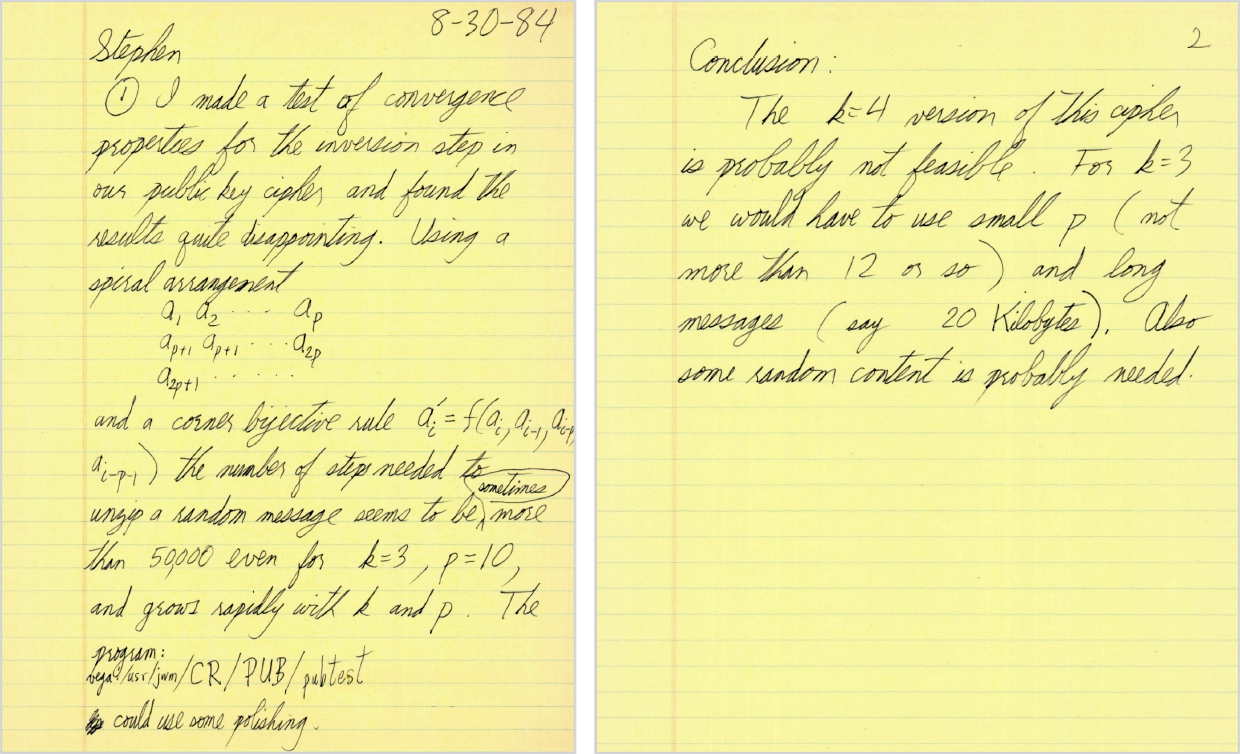 8-30-84
Stephen
① I made a test of convergence
properties for the inversion step in
our public key cipher and found the
results quite disappointing. Using a
spiral arrangement
a₁ a₂ ···· aₚ
aₚ₊₁ aₚ₊₁ ··· a₂ₚ
a₂ₚ₊₁ ······
and a corner bijective rule a'ᵢ = f(aᵢ, aᵢ₋₁, aᵢ₋ₚ,
aᵢ₋ₚ₋₁) the number of steps needed to
sometimes
unzip a random message seems to be more
than 50,000 even for k=3, p=10,
and grows rapidly with k and p. The
program:
vega!/usr/jwm/CR/PUB/pubtest
could use some polishing.
2
Conclusion:
The k=4 version of this cipher
is probably not feasible. For k=3
we would have to use small p (not
more than 12 or so) and long
messages (say 20 Kilobytes). Also
some random content is probably needed.